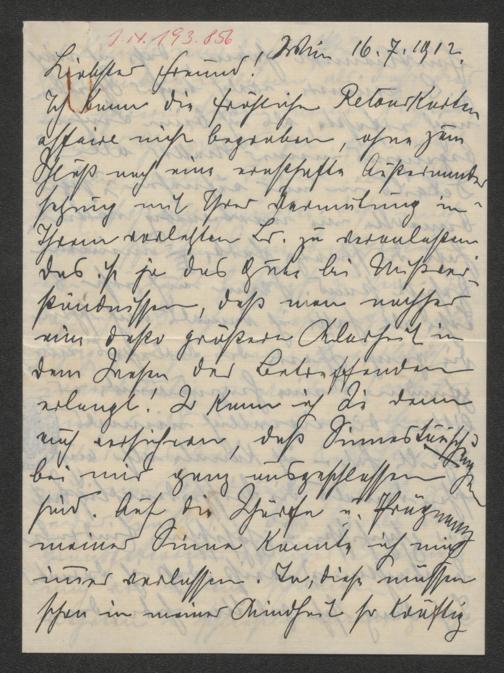 I.N. 193.856
Wien 16.7.1912.
Liebster Freund!
Ich kann die fröhliche Retourkarten
affaire nicht begraben, ohne zum
Schluß noch eine ernsthafte Auseinander
setzung mit Ihrer Vermutung in
Ihrem vorletzten Br. zu veranlassen
das ist ja das Gute bei Mißver-
ständnissen, daß man nachher
eine desto größere Klarheit in
dem Wesen der Betreffenden
erlangt! So kann ich Sie denn
auch versichern, daß Sinnestäuschungen
bei mir ganz ausgeschlossen
sind. Auf die Schärfe u. Prägnanz
meiner Sinne konnte ich mich
immer verlassen. Ja, diese müssen
schon in meiner Kindheit so kräftig